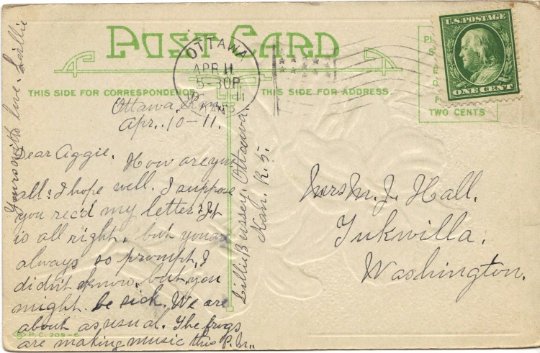 POST CARD
THIS SIDE FOR CORRESPONDENCE
THIS SIDE FOR ADDRESS
OTTAWA
APR 11
5-30 P
U.S. POSTAGE
ONE CENT
TWO CENTS
Ottawa, Kan.
Apr. 10-11.
Dear Aggie. How are you
all? I hope well. I suppose
you rec'd my letter? It
is all right, but you're
always so prompt, I
didn't know, but you
might be sick. We are
about as usual. The frogs
are making music this P.M.
Yours with love. Lillie
Ottawa,
Kan. R.5.
Mrs M. J. Hall.
Tukwilla.
Washington.